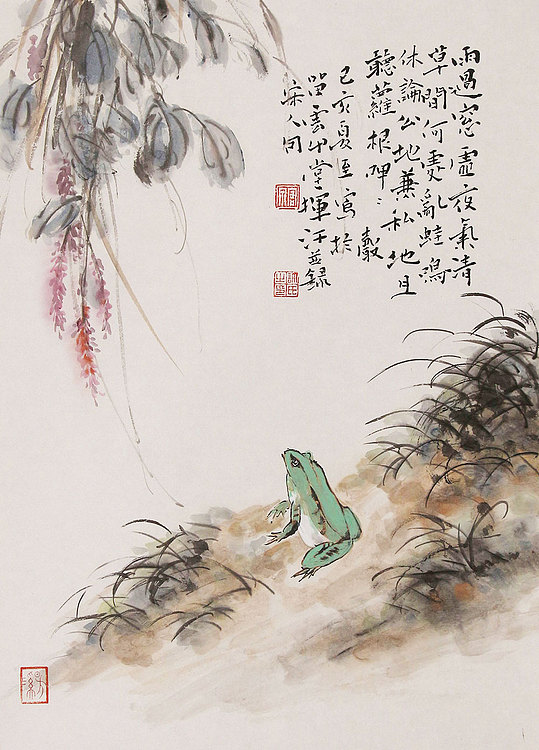 雨過窓虛夜氣清
草間何處亂蛙鳴
休論公地兼私地且
聽根呷〻聲
己亥夏至寫於
留雲草堂揮汗並錄
宋人句